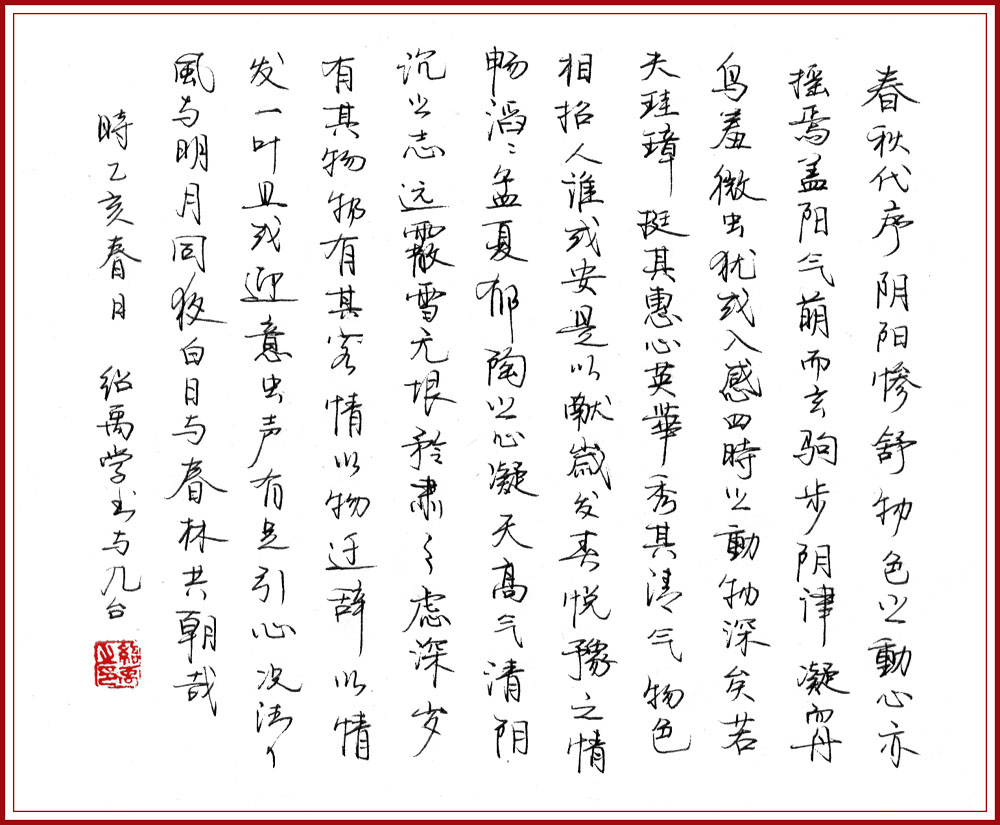 春秋代序阴阳惨舒物色之動心亦
摇焉盖阳气萌而玄驹步阴律凝而丹
鸟羞微虫犹或入感四時之動物深矣若
夫珪璋挺其惠心英華秀其清气物色
相招人谁或安是以献歲发春悦豫之情
畅滔〻孟夏郁陶之心凝天高气清阴
沉之志远霰雪无垠矜肃之虑深岁
有其物物有其容情以物迁辞以情
发一叶且或迎意虫声有足引心况清
風与明月同夜白日与春林共朝哉
時乙亥春日 绍禹学书与几台
紹禹之印